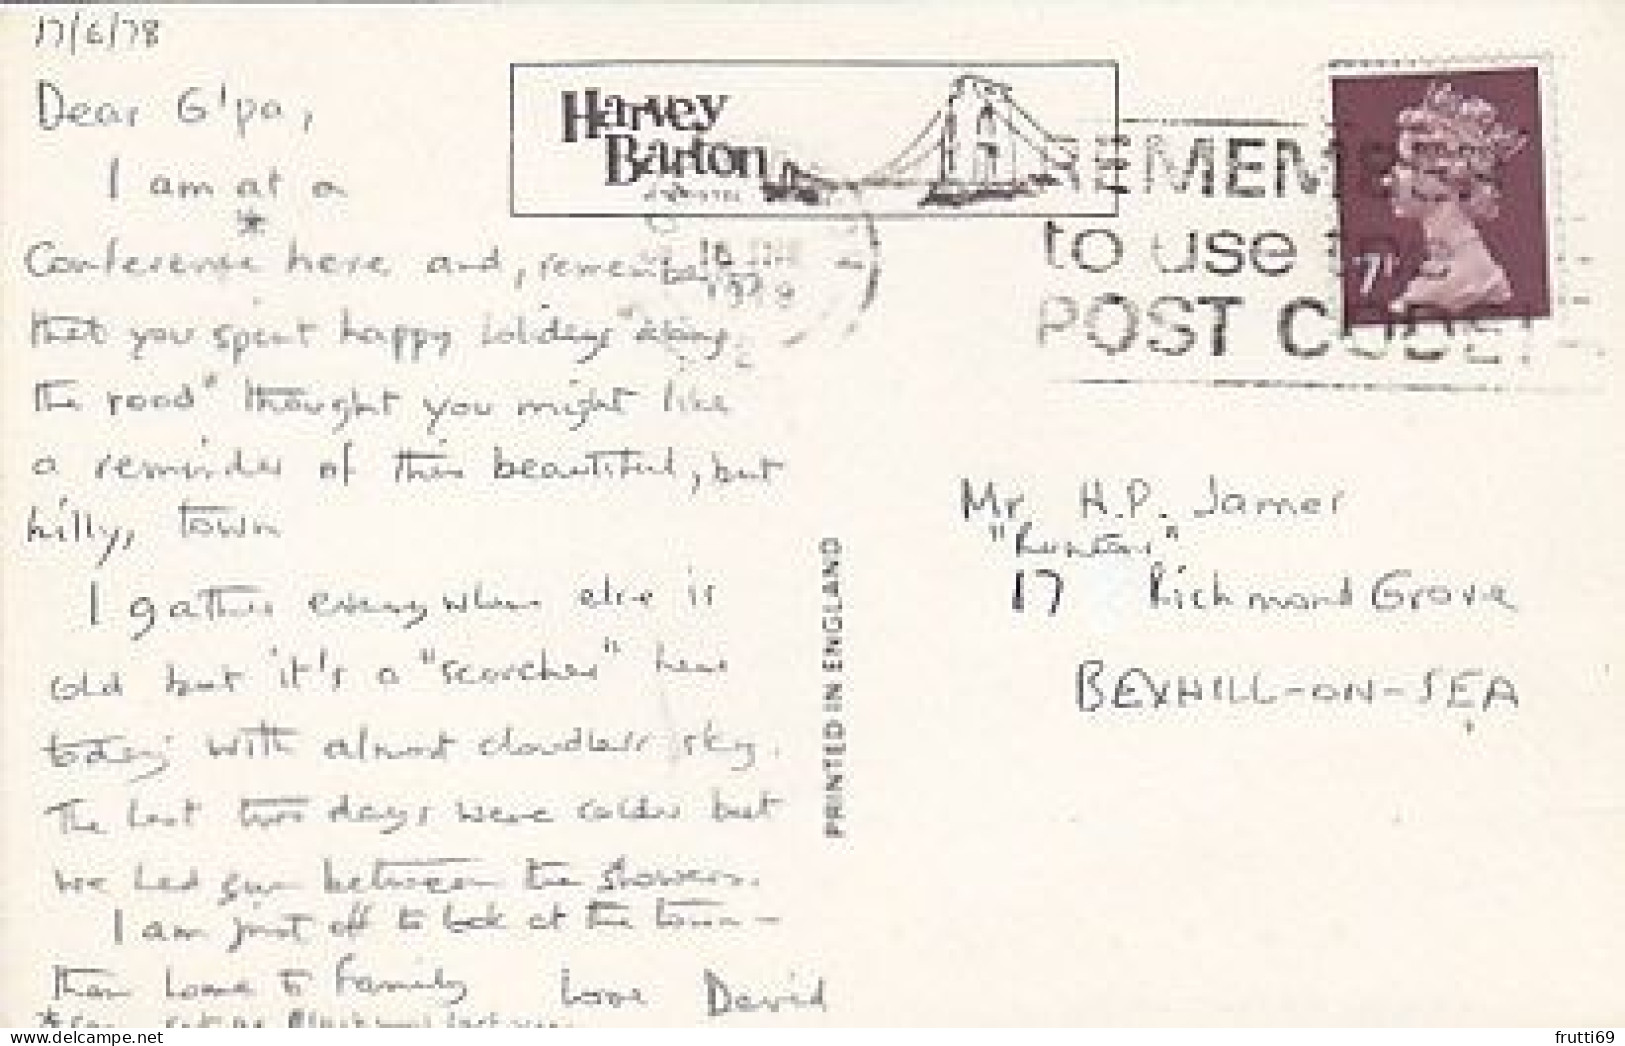 17/6/78
Dear G'pa,
I am at a
*
Conference here and, remembering
that you spent happy holidays "along
the road" thought you might like
a reminder of this beautiful, but
hilly, town
I gather everywhere else is
cold but it's a "scorcher" here
today with almost cloudless sky.
The last two days were colder but
we had sun between the showers.
I am just off to look at the town -
then home to family
Love David
Harvey
Barton
BRISTOL
REMEMBER
to use the
POST CODE!
7P
Mr H.P. James
17 Richmond Grove
BEXHILL-ON-SEA
PRINTED IN ENGLAND
frutti69